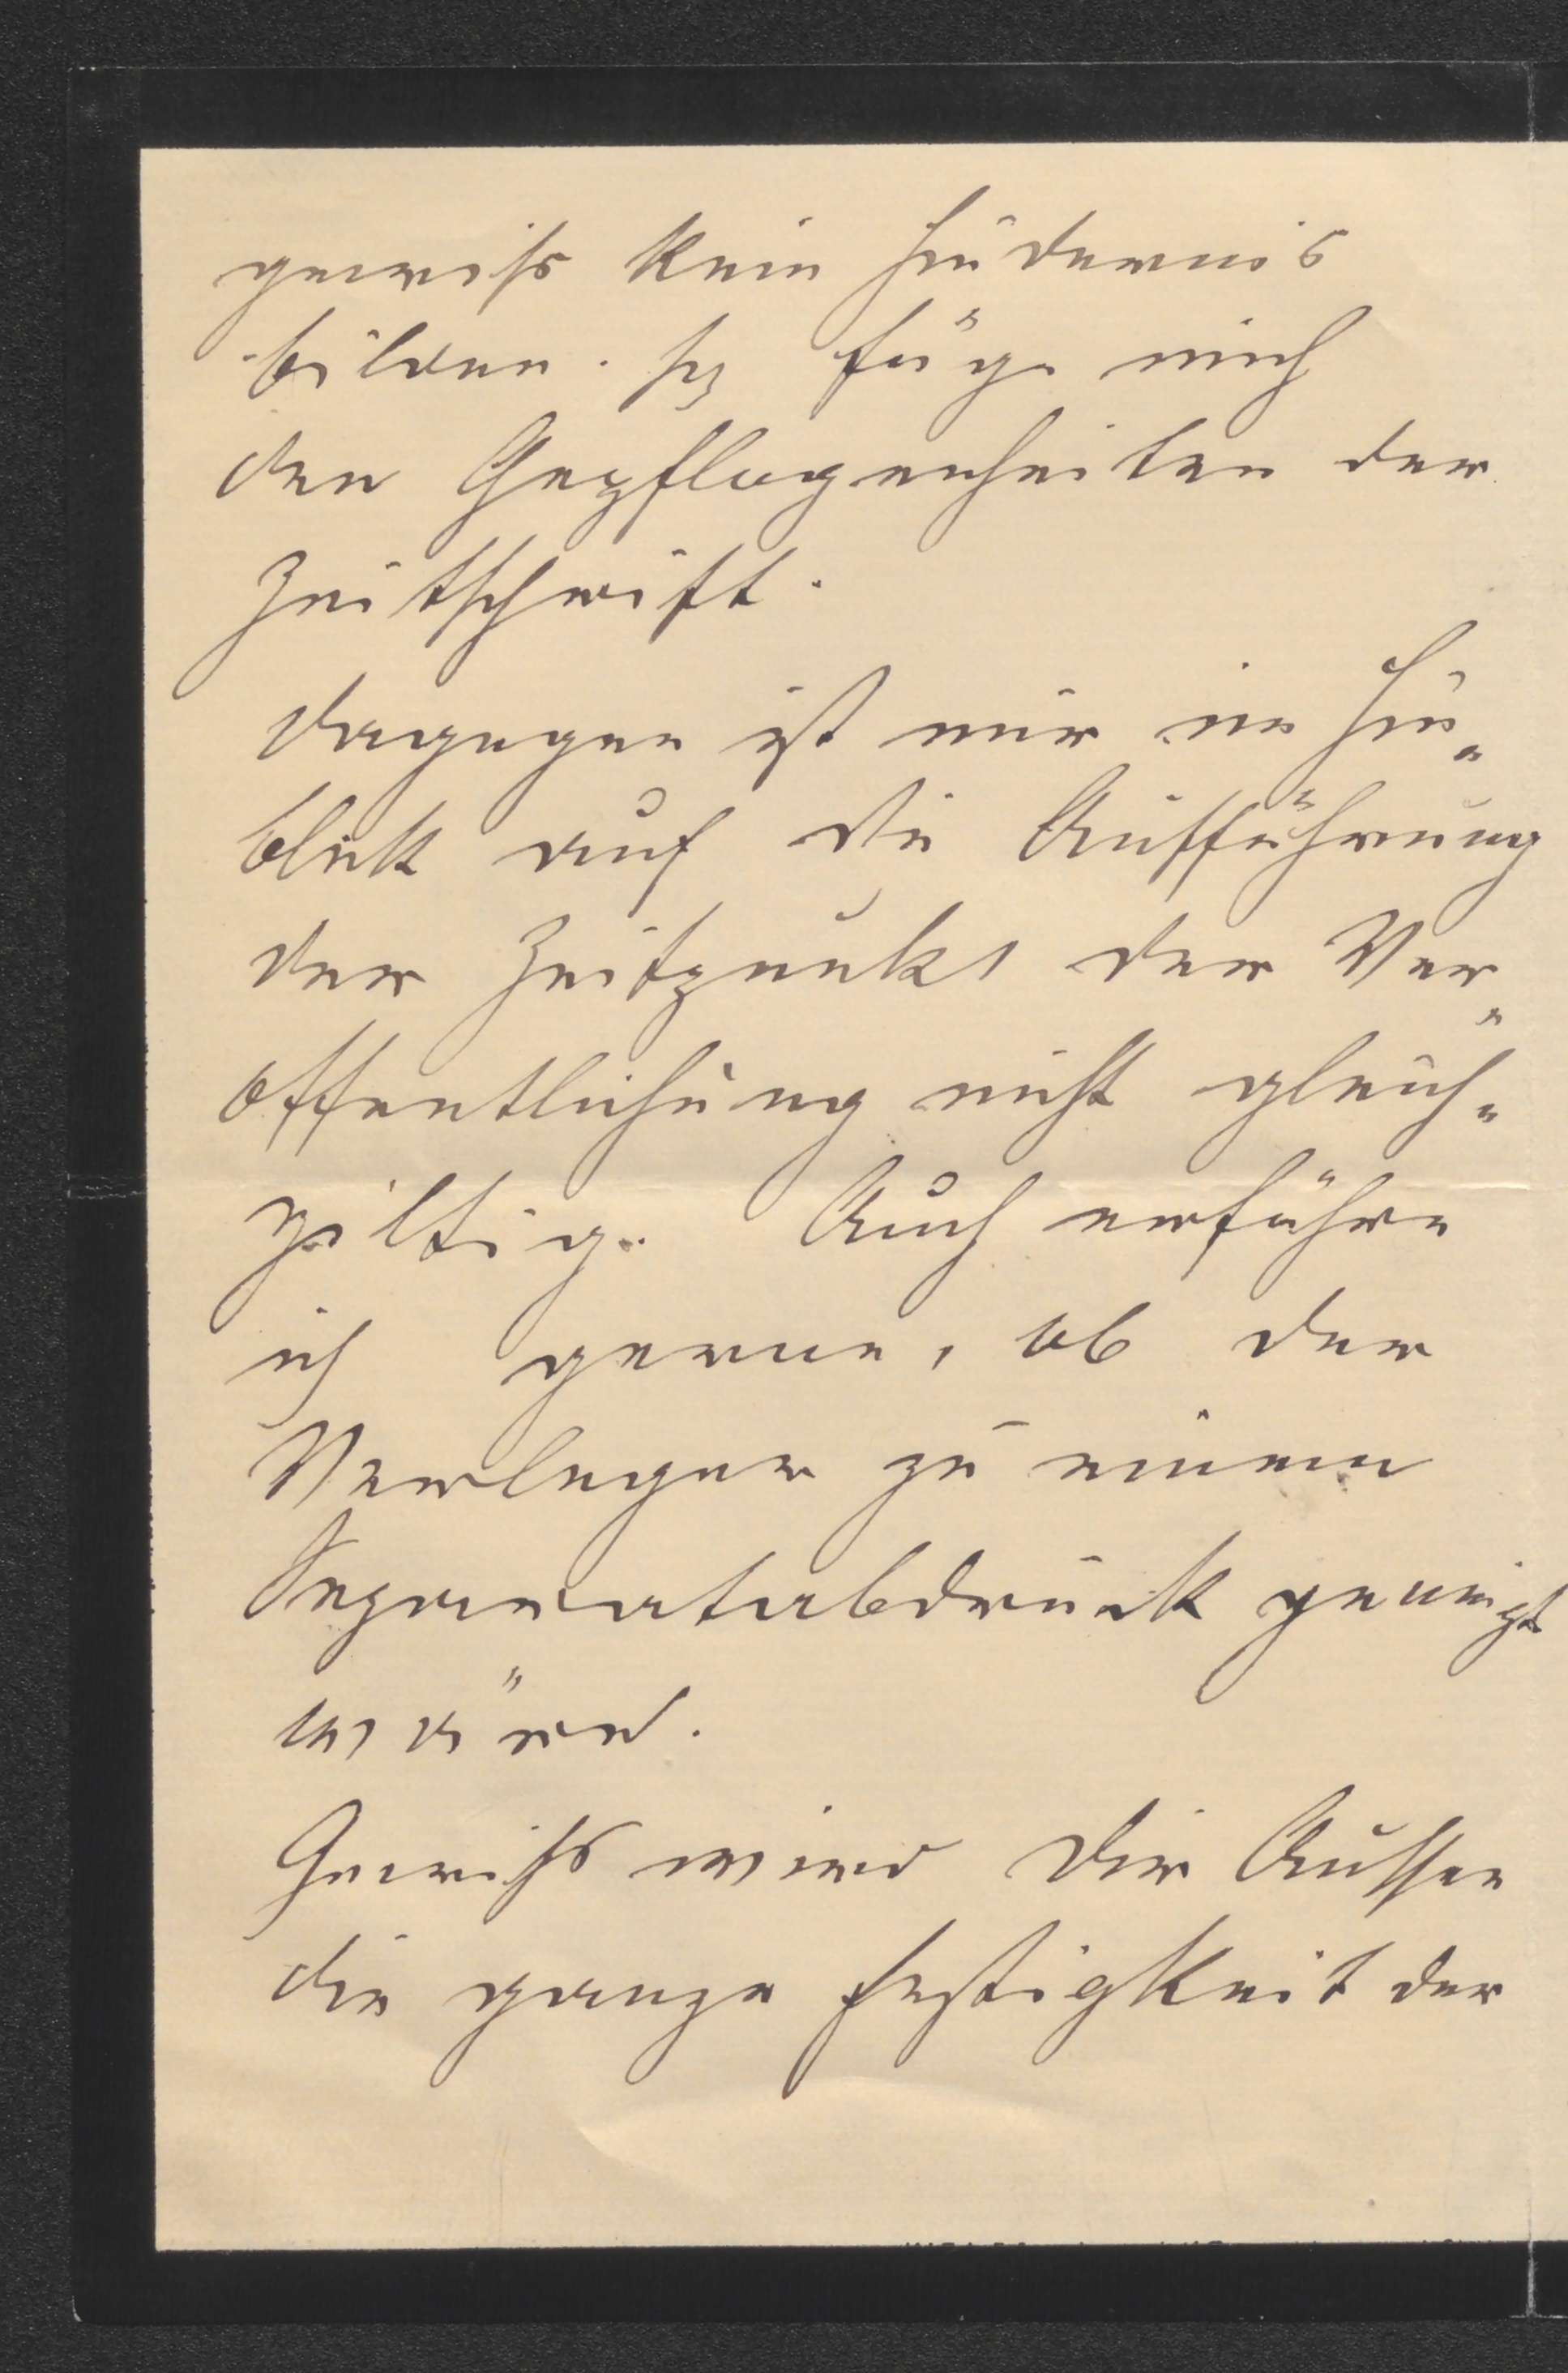 gewiss kein Hindernis
bilden. Ich füge mich
den Gepflogenheiten der
Zeitschrift.
Dagegen ist mir im Hin-
blick auf die Aufführung
der Zeitpunkt der Ver-
öffentlichung nicht gleich-
giltig. Auch erführe
ich gerne, ob der
Verleger zu einem
Separatabdruck geneigt
wäre.
Gewiss wird Dir Aussee
die ganze Festigkeit der